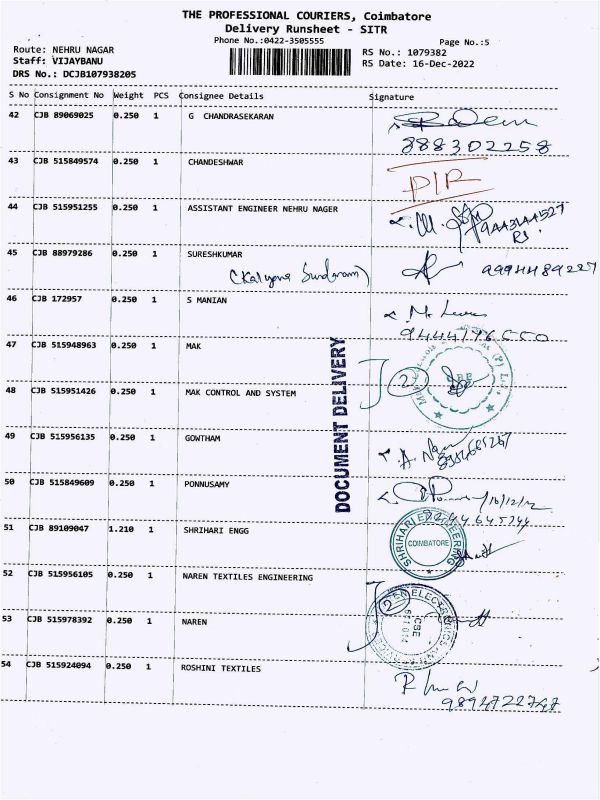 THE PROFESSIONAL COURIERS, Coimbatore
Delivery Runsheet - SITR
Phone No.:0422-3505555
Page No.:5
Route: NEHRU NAGAR
Staff: VIJAYBANU
DRS No.: DCJB107938205
RS No.: 1079382
RS Date: 16-Dec-2022
S No Consignment No Weight PCS Consignee Details Signature
42 CJB 89069025 0.250 1 G CHANDRASEKARAN
888302258
43 CJB 515849574 0.250 1 CHANDESHWAR
44 CJB 515951255 0.250 1 ASSISTANT ENGINEER NEHRU NAGER
45 CJB 88979286 0.250 1 SURESHKUMAR
(Kalyana Sundaram) 9994489227
46 CJB 172957 0.250 1 S MANIAN
47 CJB 515948963 0.250 1 MAK
2
48 CJB 515951426 0.250 1 MAK CONTROL AND SYSTEM
DOCUMENT DELIVERY
49 CJB 515956135 0.250 1 GOWTHAM
50 CJB 515849609 0.250 1 PONNUSAMY
51 CJB 89109047 1.210 1 SHRIHARI ENGG
SHRIHARI ENGINEERING
COIMBATORE
52 CJB 515956105 0.250 1 NAREN TEXTILES ENGINEERING
2
53 CJB 515978392 0.250 1 NAREN
CBE
54 CJB 515924094 0.250 1 ROSHINI TEXTILES
9894722747